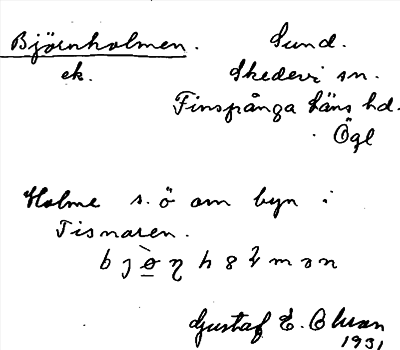 Björnholmen. Sund.
ek. Skedevi sn.
Finspånga läns hd.
Ögl
Holme s. ö om byn i
Tisnaren.
Gustaf E.
1931